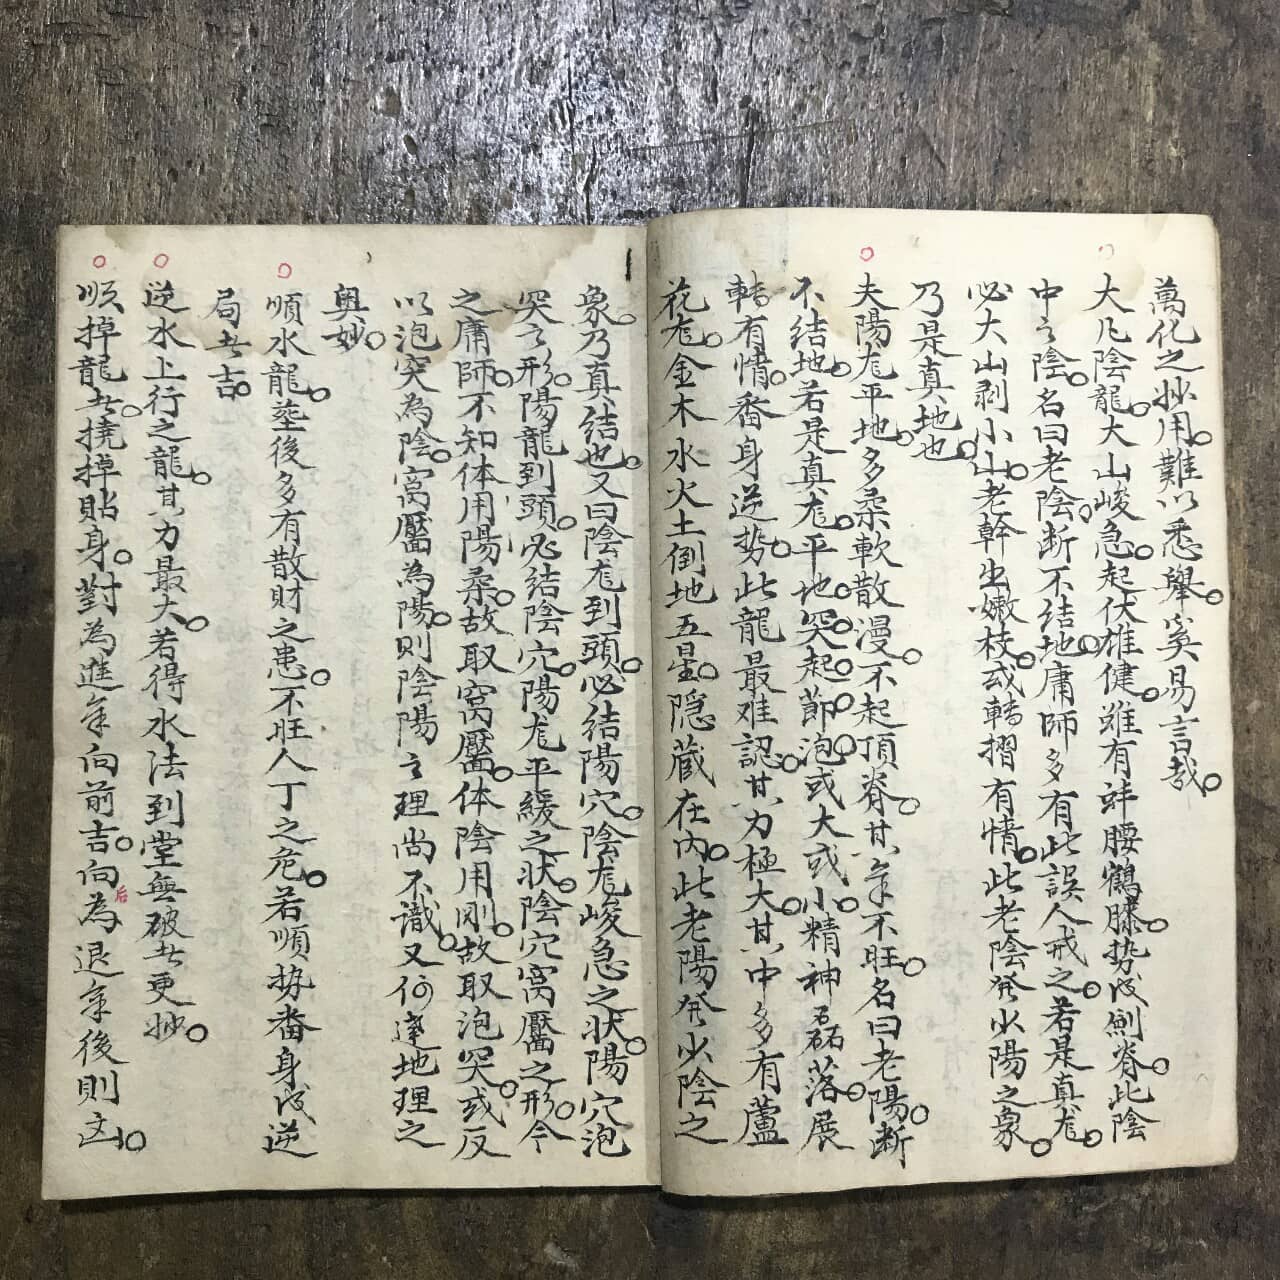 萬化之妙用。難以悉舉。奚易言哉。
大凡陰龍。大山峻急。起伏雄健。雖有蜂腰鶴膝。势成劍脊。此陰
中之陰。名曰老陰。断不结地。庸師多有此誤人戒之。若是真龙。
必大山剥小山。老幹生嫩枝。或轉摺有情。此老陰發少陽之象。
乃是真地也。
夫陽龙平地。多柔軟散漫。不起頂脊。其氣不旺。名曰老陽。断
不结地。若是真龙。平地。突。起。節。泡。或大或小。精神磊落。展
轉有情。番身逆势。此龍最难認。其力極大。其中多有蘆
花龙。金木水火土倒地五星。隐藏在内。此老陽發少陰之
象。乃真结也。又曰陰龙到頭。必结陽穴。陰龙峻急之状。陽穴泡
突之形。陽龍到頭。必结陰穴。陽龙平緩之状。陰穴窩靨之形。今
之庸師。不知体用陽柔。故取窩靨。体陰用刚。故取泡突。或反
以泡突為陰。窩靨為陽。則陰陽之理尚不識。又何達地理之
奥妙。
順水龍。塟後多有散財之患。不旺人丁之危。若順势番身成逆
局者吉。
逆水上行之龍。其力最大。若得水法到堂無破者更妙。
順掉龍者。撓掉貼身。對為進氣向前吉。向后為退氣後則凶。